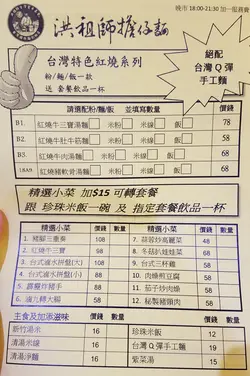 晚市 18:00-21:30 加一服務費
洪祖師擔仔麵
台灣特色紅燒系列
粉/麵/飯一款
送 套餐飲品一杯
絕配
台灣Q彈
手工麵
請選配粉/麵/飯 並填寫數量 價錢
B1. 紅燒牛三寶湯麵 米粉 米線 飯 78
B2. 紅燒牛肚牛筋麵 米粉 米線 飯 58
B3. 紅燒牛肉湯麵 米粉 米線 飯 68
紅燒豬軟骨湯麵 米粉 米線 飯 58
精選小菜 加$15 可轉套餐
跟 珍珠米飯一碗 及 指定套餐飲品一杯
精選小菜 價錢 數量 精選小菜 價錢 數量
1. 豬腳三重奏 108 7. 蒜蓉炒高麗菜 48
2. 紅燒牛三寶 98 8. 冬菇扒娃娃菜 58
3. 台式滷水拼盤(大) 108 9. 台式三杯雞 68
4. 台式滷水拼盤(小) 88 10. 肉燥煎豆腐 58
5. 霹靂炸豬手 88 11. 茄子炒肉燥 58
6. 滷九轉大腸 58 12. 秘製豬頭肉 58
主食及加添滋味
價錢 數量 價錢 數量
新竹湯米 16 珍珠米飯 12
清湯米線 16 台灣Q彈手工麵 19
清湯淨麵 16 紫菜湯 15